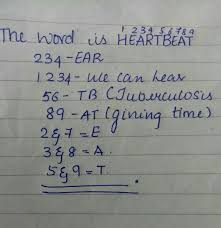 1 2 3 4 5 6 7 8 9
The word is HEARTBEAT
234-EAR
1234- We can hear
56- TB (Tuberculosis
89 - AT (gining time)
2&7 = E
3&8 = A.
5&9 = T.